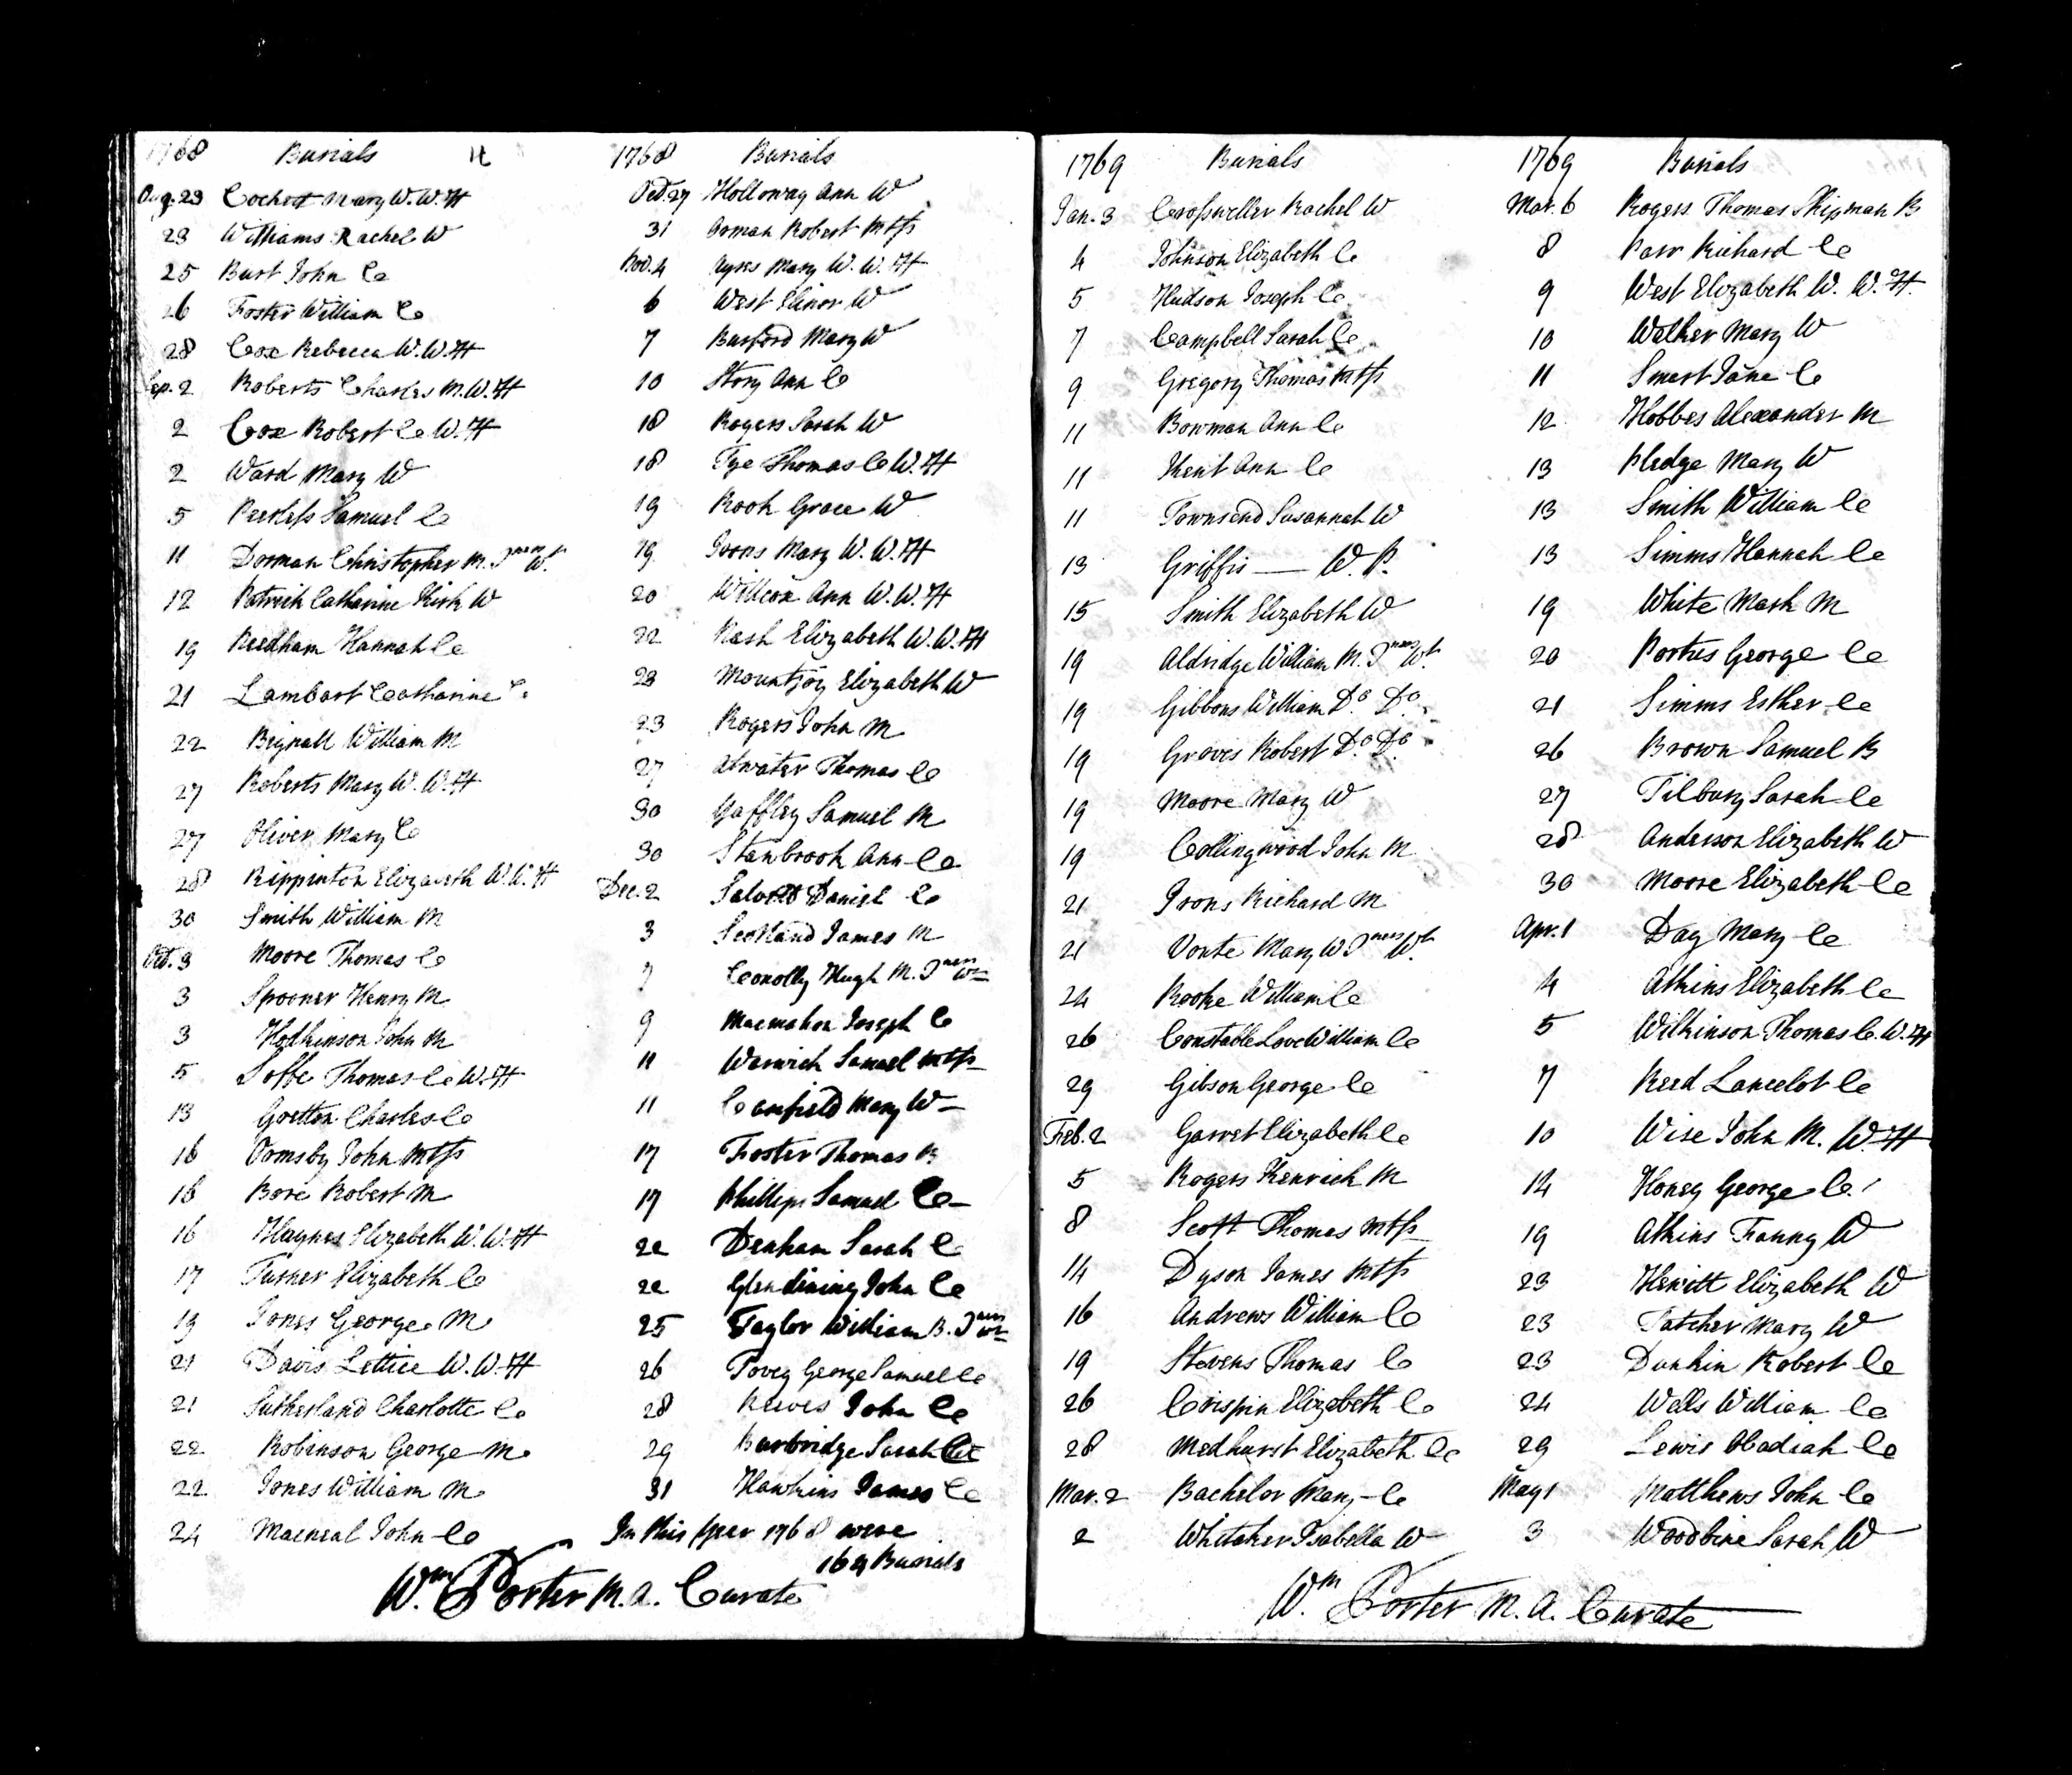 1768 Burials
Aug. 23 Mary W. W. H
23 Williams Rachel W
25 Burt John C
26 Foster William C
28 Cox Rebecca W. W. H
Sep. 2 Roberts Charles M. W. H
2 Cox Robert C W. H
2 Ward Mary W
5 Perkess Samuel C
11 Dorman Christopher M. J ners W.
12 Patrick Catharine Kirk W
19 Needham Hannah C
21 Lambart Catharine C
22 Bignall William M
27 Roberts Mary W. W. H
27 Oliver Mary C
28 Rippinton Elizabeth W. W. H
30 Smith William M
Oct. 3 Moore Thomas C
3 Spooner Henry M
3 Hodkinson John M
5 Thomas C W. H
13 Gretton Charles C
16 Ormsby John Mtss
16 Bore Robert M
16 Haynes Elizabeth W. W. H
17 Turner Elizabeth C
19 Jones George M
21 Davis Lettice W. W. H
21 Sutherland Charlotte C
22 Robinson George M
22 Jones William M
24 Macneal John C
1768 Burials
Oct. 27 Holloway Ann W
31 Robert Mtss
Nov. 4 Ayres Mary W. W. H
6 West Elinor W
7 Burford Mary W
10 Story Ann C
18 Rogers Sarah W
18 Tye Thomas C W. H
19 Rook Grace W
19 Irons Mary W. W. H
20 Willcox Ann W. W. H
22 Nash Elizabeth W. W. H
23 Mountjoy Elizabeth W
23 Rogers John M
27 Atwater Thomas C
30 Gaffley Samuel M
30 Stanbrook Ann C
Dec. 2 Daniel C
3 Scotland James M
7 Conolly Hugh M. J ners W
9 Macmahon Joseph C
11 Warwick Samuel Mtss
11 Canfield Mary W
17 Foster Thomas B
17 Phillips Samuel C
22 Denham Sarah C
22 Glendining John C
25 Taylor William B. J ners W
26 Tovey George Samuel C
28 Reeves John C
29 Burbridge Sarah C
31 Hawkins James C
In this Year 1768 were
164 Burials
Wm. Porter M. A. Curate
1769 Burials
Jan. 3 Crossweller Rachel W
4 Johnson Elizabeth C
5 Hudson Joseph C
7 Campbell Sarah C
9 Gregory Thomas Mtss
11 Bowman Ann C
11 Kent Ann C
11 Townsend Susannah W
13 Griffis — W. P.
15 Smith Elizabeth W
19 Aldridge William M. J ners W.
19 Gibbons William Do. Do.
19 Groves Robert Do. Do.
19 Moore Mary W
19 Collingwood John M
21 Irons Richard M
21 Mary W J ners W.
24 Rooke William C
26 Constable Love William C
29 Gibson George C
Feb. 2 Garret Elizabeth C
5 Rogers Kenrick M
8 Scott Thomas Mtss
14 Dyson James Mtss
16 Andrews William C
19 Stevens Thomas C
26 Crispin Elizabeth C
28 Medhurst Elizabeth C
Mar. 2 Bachelor Mary C
2 Whitaker Isabella W
1769 Burials
Mar. 6 Rogers Thomas Shipman B
8 Parr Richard C
9 West Elizabeth W. W. H.
10 Walker Mary W
11 Smart Jane C
12 Hobbes Alexander M
13 Pledge Mary W
13 Smith William C
13 Simms Hannah C
19 White Mark M
20 Porteus George C
21 Simms Esther C
26 Brown Samuel B
27 Tilbury Sarah C
28 Anderson Elizabeth W
30 Moore Elizabeth C
Apr. 1 Day Mary C
4 Atkins Elizabeth C
5 Wilkinson Thomas C. W. H
7 Reed Lancelot C
10 Wise John M. W. H
14 Honey George C.
19 Atkins Fanny W
23 Hewitt Elizabeth W
23 Tatcher Mary W
23 Dunkin Robert C
24 Wells William C
29 Lewis Obadiah C
May 1 Matthews John C
3 Woodbine Sarah W
Wm. Porter M. A. Curate